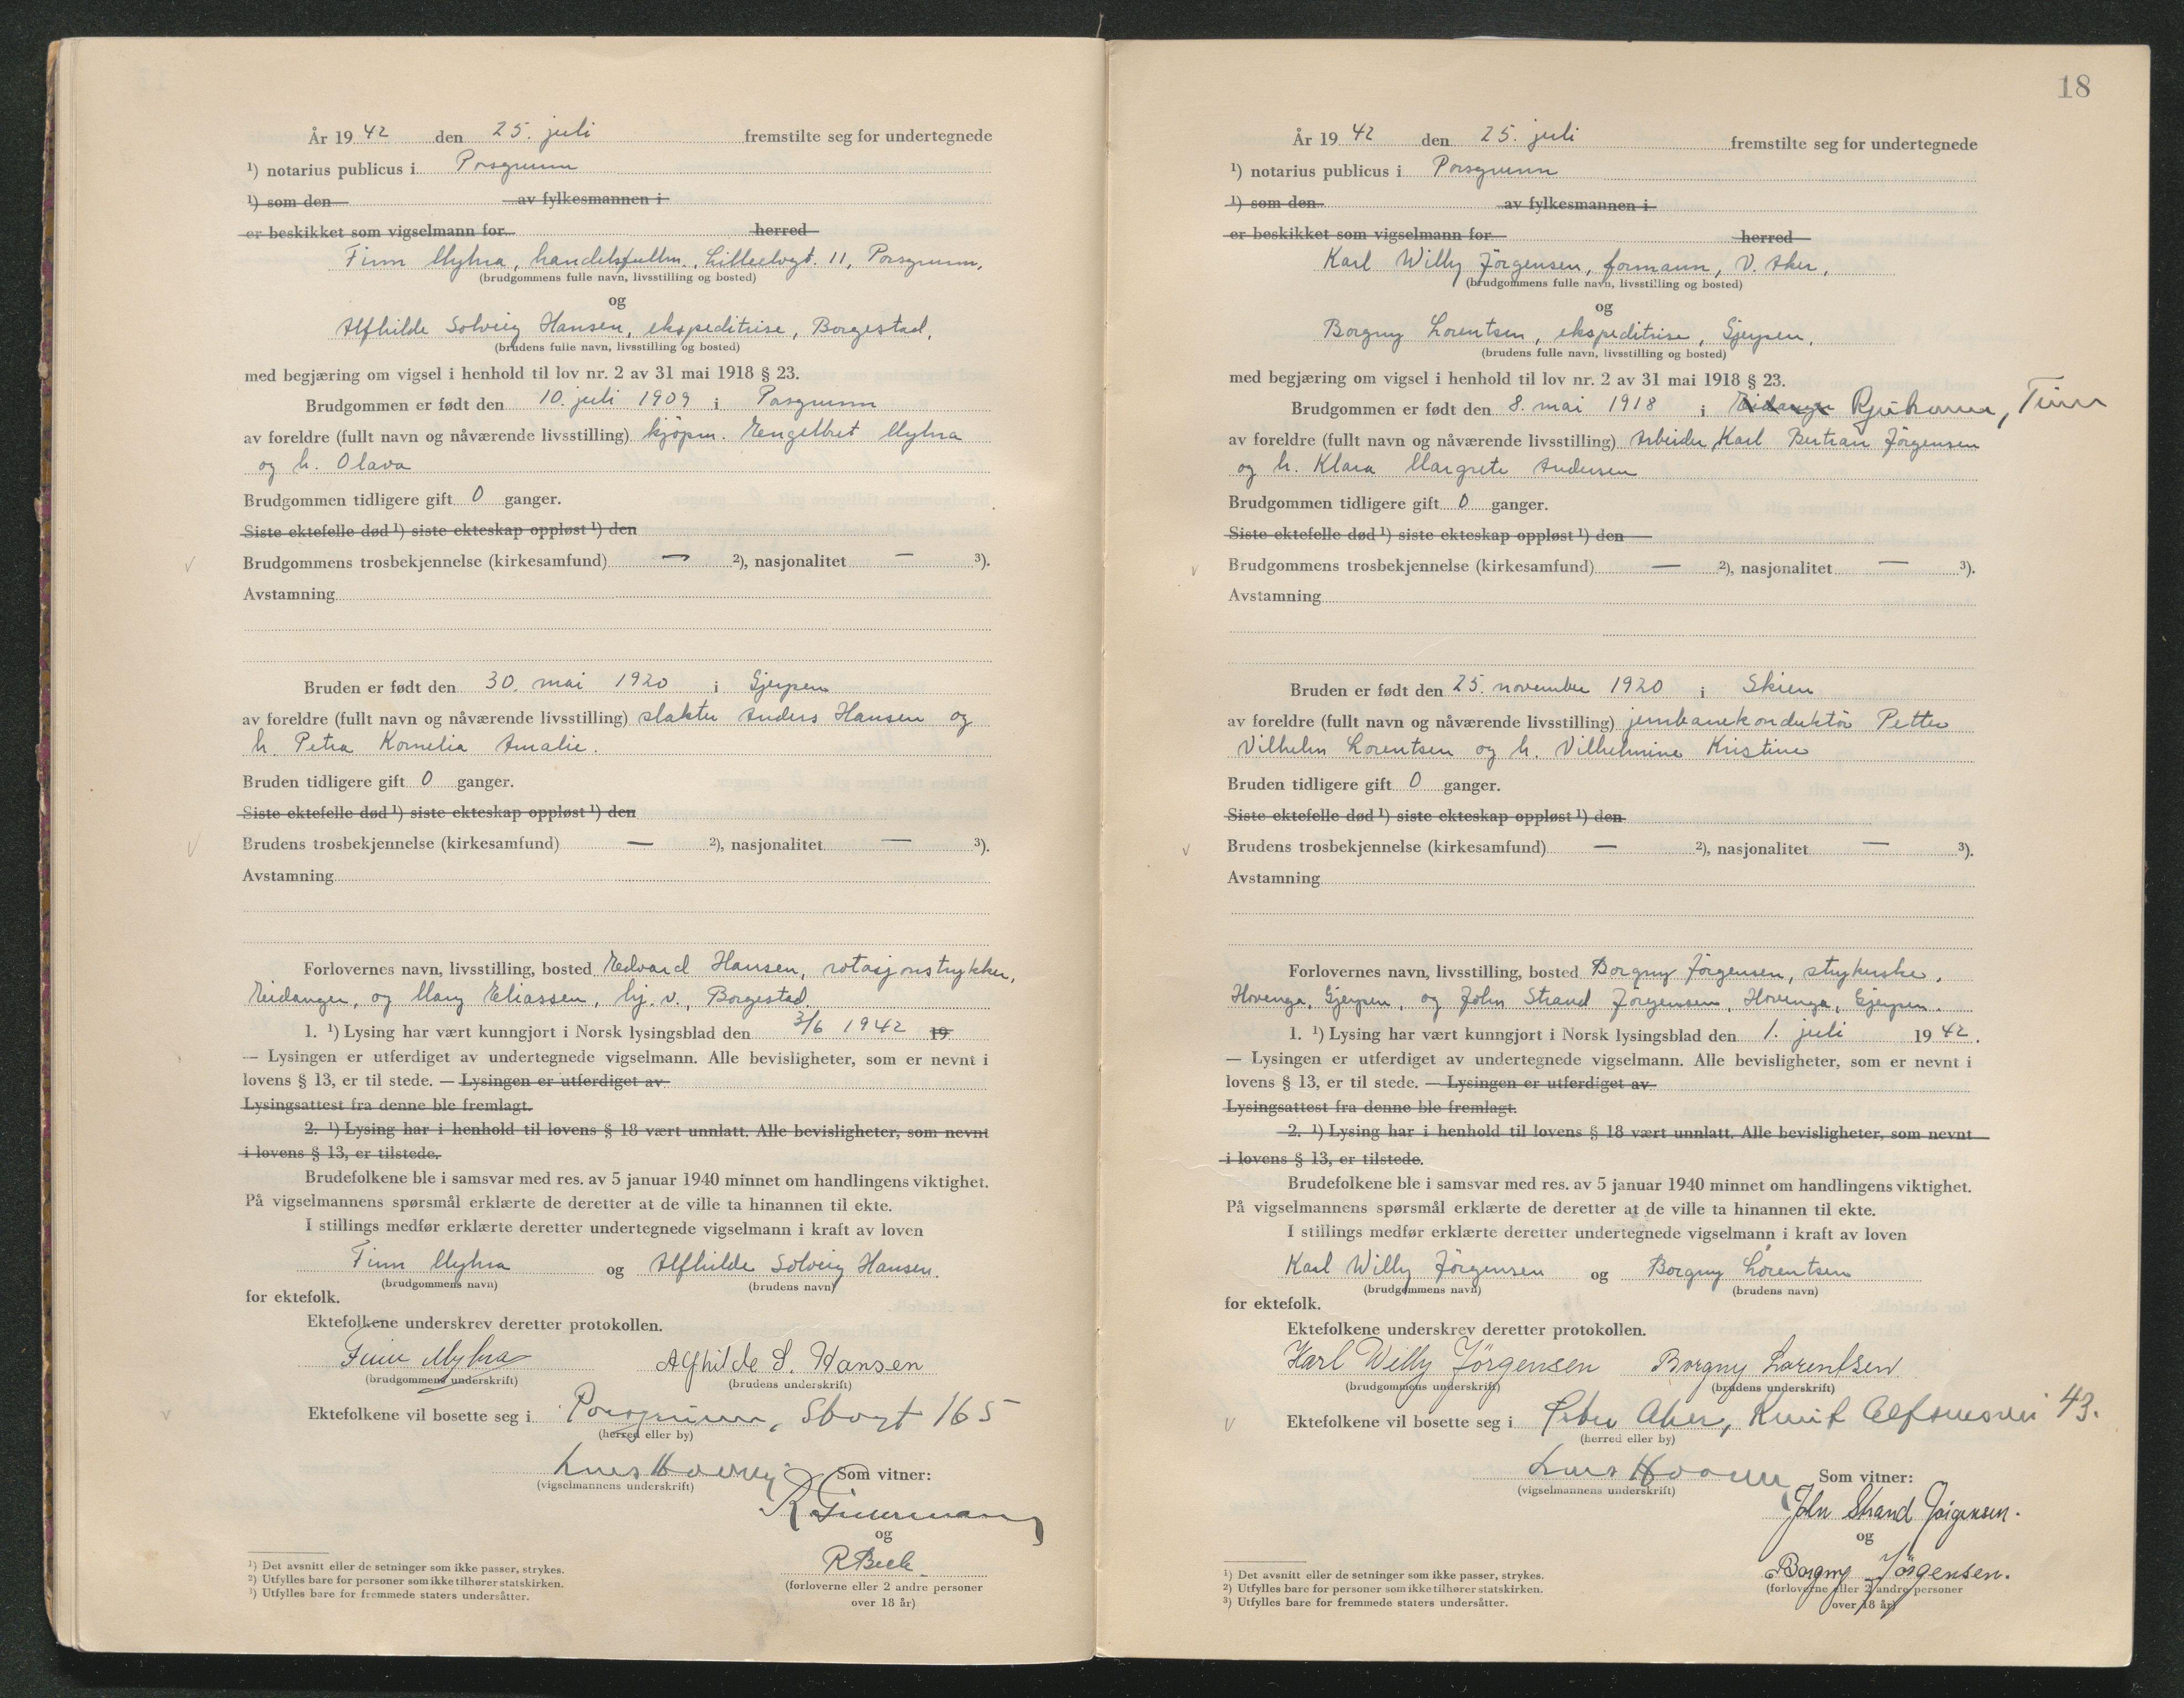 År 19 42 den 25. juli fremstilte seg for undertegnede
¹) notarius publicus i Porsgrunn
¹) som den av fylkesmannen i
er beskikket som vigselmann for herred
Finn Myhra, handelsfullm., Lilleelvgt. 11, Porsgrunn,
(brudgommens fulle navn, livsstilling og bosted)
og
Alfhilde Solveig Hansen, ekspeditrise, Borgestad,
(brudens fulle navn, livsstilling og bosted)
med begjæring om vigsel i henhold til lov nr. 2 av 31 mai 1918 § 23.
Brudgommen er født den 10. juli 1909 i Porsgrunn
av foreldre (fullt navn og nåværende livsstilling) kjøpm. Engelbret Myhra
og h. Olava
Brudgommen tidligere gift 0 ganger.
Siste ektefelle død ¹) siste ekteskap oppløst ¹) den
Brudgommens trosbekjennelse (kirkesamfund) — ²), nasjonalitet — ³).
Avstamning
Bruden er født den 30. mai 1920 i Gjerpen
av foreldre (fullt navn og nåværende livsstilling) slakter Anders Hansen og
h. Petra Kornelia Amalie.
Bruden tidligere gift 0 ganger.
Siste ektefelle død ¹) siste ekteskap oppløst ¹) den
Brudens trosbekjennelse (kirkesamfund) — ²), nasjonalitet — ³).
Avstamning
Forlovernes navn, livsstilling, bosted Edvard Hansen, rotasjonstrykker,
Eidanger, og Mary Eliassen, hj. v., Borgestad.
1. ¹) Lysing har vært kunngjort i Norsk lysingsblad den 3/6 1942 19
— Lysingen er utferdiget av undertegnede vigselmann. Alle bevisligheter, som er nevnt i
lovens § 13, er til stede. — Lysingen er utferdiget av
Lysingsattest fra denne ble fremlagt.
2. ¹) Lysing har i henhold til lovens § 18 vært unnlatt. Alle bevisligheter, som nevnt
i lovens § 13, er tilstede.
Brudefolkene ble i samsvar med res. av 5 januar 1940 minnet om handlingens viktighet.
På vigselmannens spørsmål erklærte de deretter at de ville ta hinannen til ekte.
I stillings medfør erklærte deretter undertegnede vigselmann i kraft av loven
Finn Myhra og Alfhilde Solveig Hansen.
(brudgommens navn) (brudens navn)
for ektefolk.
Ektefolkene underskrev deretter protokollen.
Finn Myhra Alfhilde S. Hansen
(brudgommens underskrift) (brudens underskrift)
Ektefolkene vil bosette seg i Porsgrunn, Storgt 165
(herred eller by)
Som vitner:
(vigselmannens underskrift)
og
(forloverne eller 2 andre personer
over 18 år)
¹) Det avsnitt eller de setninger som ikke passer, strykes.
²) Utfylles bare for personer som ikke tilhører statskirken.
³) Utfylles bare for fremmede staters undersåtter.
18
År 19 42 den 25. juli fremstilte seg for undertegnede
¹) notarius publicus i Porsgrunn
¹) som den av fylkesmannen i
er beskikket som vigselmann for herred
Karl Willy Jörgensen, formann, V. Aker,
(brudgommens fulle navn, livsstilling og bosted)
og
Borgny Lorentsen, ekspeditrise, Gjerpen,
(brudens fulle navn, livsstilling og bosted)
med begjæring om vigsel i henhold til lov nr. 2 av 31 mai 1918 § 23.
Brudgommen er født den 8. mai 1918 i Eidanger Rjukan, Tinn
av foreldre (fullt navn og nåværende livsstilling) Arbeider Karl Bertran Jörgensen
og h. Klara Margrete Andersen
Brudgommen tidligere gift 0 ganger.
Siste ektefelle død ¹) siste ekteskap oppløst ¹) den
Brudgommens trosbekjennelse (kirkesamfund) — ²), nasjonalitet — ³).
Avstamning
Bruden er født den 25. november 1920 i Skien
av foreldre (fullt navn og nåværende livsstilling) jernbanekonduktör Petter
Vilhelm Lorentsen og h. Vilhelmine Kristine
Bruden tidligere gift 0 ganger.
Siste ektefelle død ¹) siste ekteskap oppløst ¹) den
Brudens trosbekjennelse (kirkesamfund) — ²), nasjonalitet — ³).
Avstamning
Forlovernes navn, livsstilling, bosted Borgny Jörgensen, strykerske,
Hovenga, Gjerpen, og John Strand Jörgensen, Hovenga, Gjerpen.
1. ¹) Lysing har vært kunngjort i Norsk lysingsblad den 1. juli 19 42.
— Lysingen er utferdiget av undertegnede vigselmann. Alle bevisligheter, som er nevnt i
lovens § 13, er til stede. — Lysingen er utferdiget av
Lysingsattest fra denne ble fremlagt.
2. ¹) Lysing har i henhold til lovens § 18 vært unnlatt. Alle bevisligheter, som nevnt
i lovens § 13, er tilstede.
Brudefolkene ble i samsvar med res. av 5 januar 1940 minnet om handlingens viktighet.
På vigselmannens spørsmål erklærte de deretter at de ville ta hinannen til ekte.
I stillings medfør erklærte deretter undertegnede vigselmann i kraft av loven
Karl Willy Jörgensen og Borgny Lorentsen
(brudgommens navn) (brudens navn)
for ektefolk.
Ektefolkene underskrev deretter protokollen.
Karl Willy Jörgensen Borgny Lorentsen
(brudgommens underskrift) (brudens underskrift)
Ektefolkene vil bosette seg i Aker, 43.
(herred eller by)
Som vitner:
(vigselmannens underskrift)
John Strand Jörgensen.
og
Borgny Jörgensen.
(forloverne eller 2 andre personer
over 18 år)
¹) Det avsnitt eller de setninger som ikke passer, strykes.
²) Utfylles bare for personer som ikke tilhører statskirken.
³) Utfylles bare for fremmede staters undersåtter.